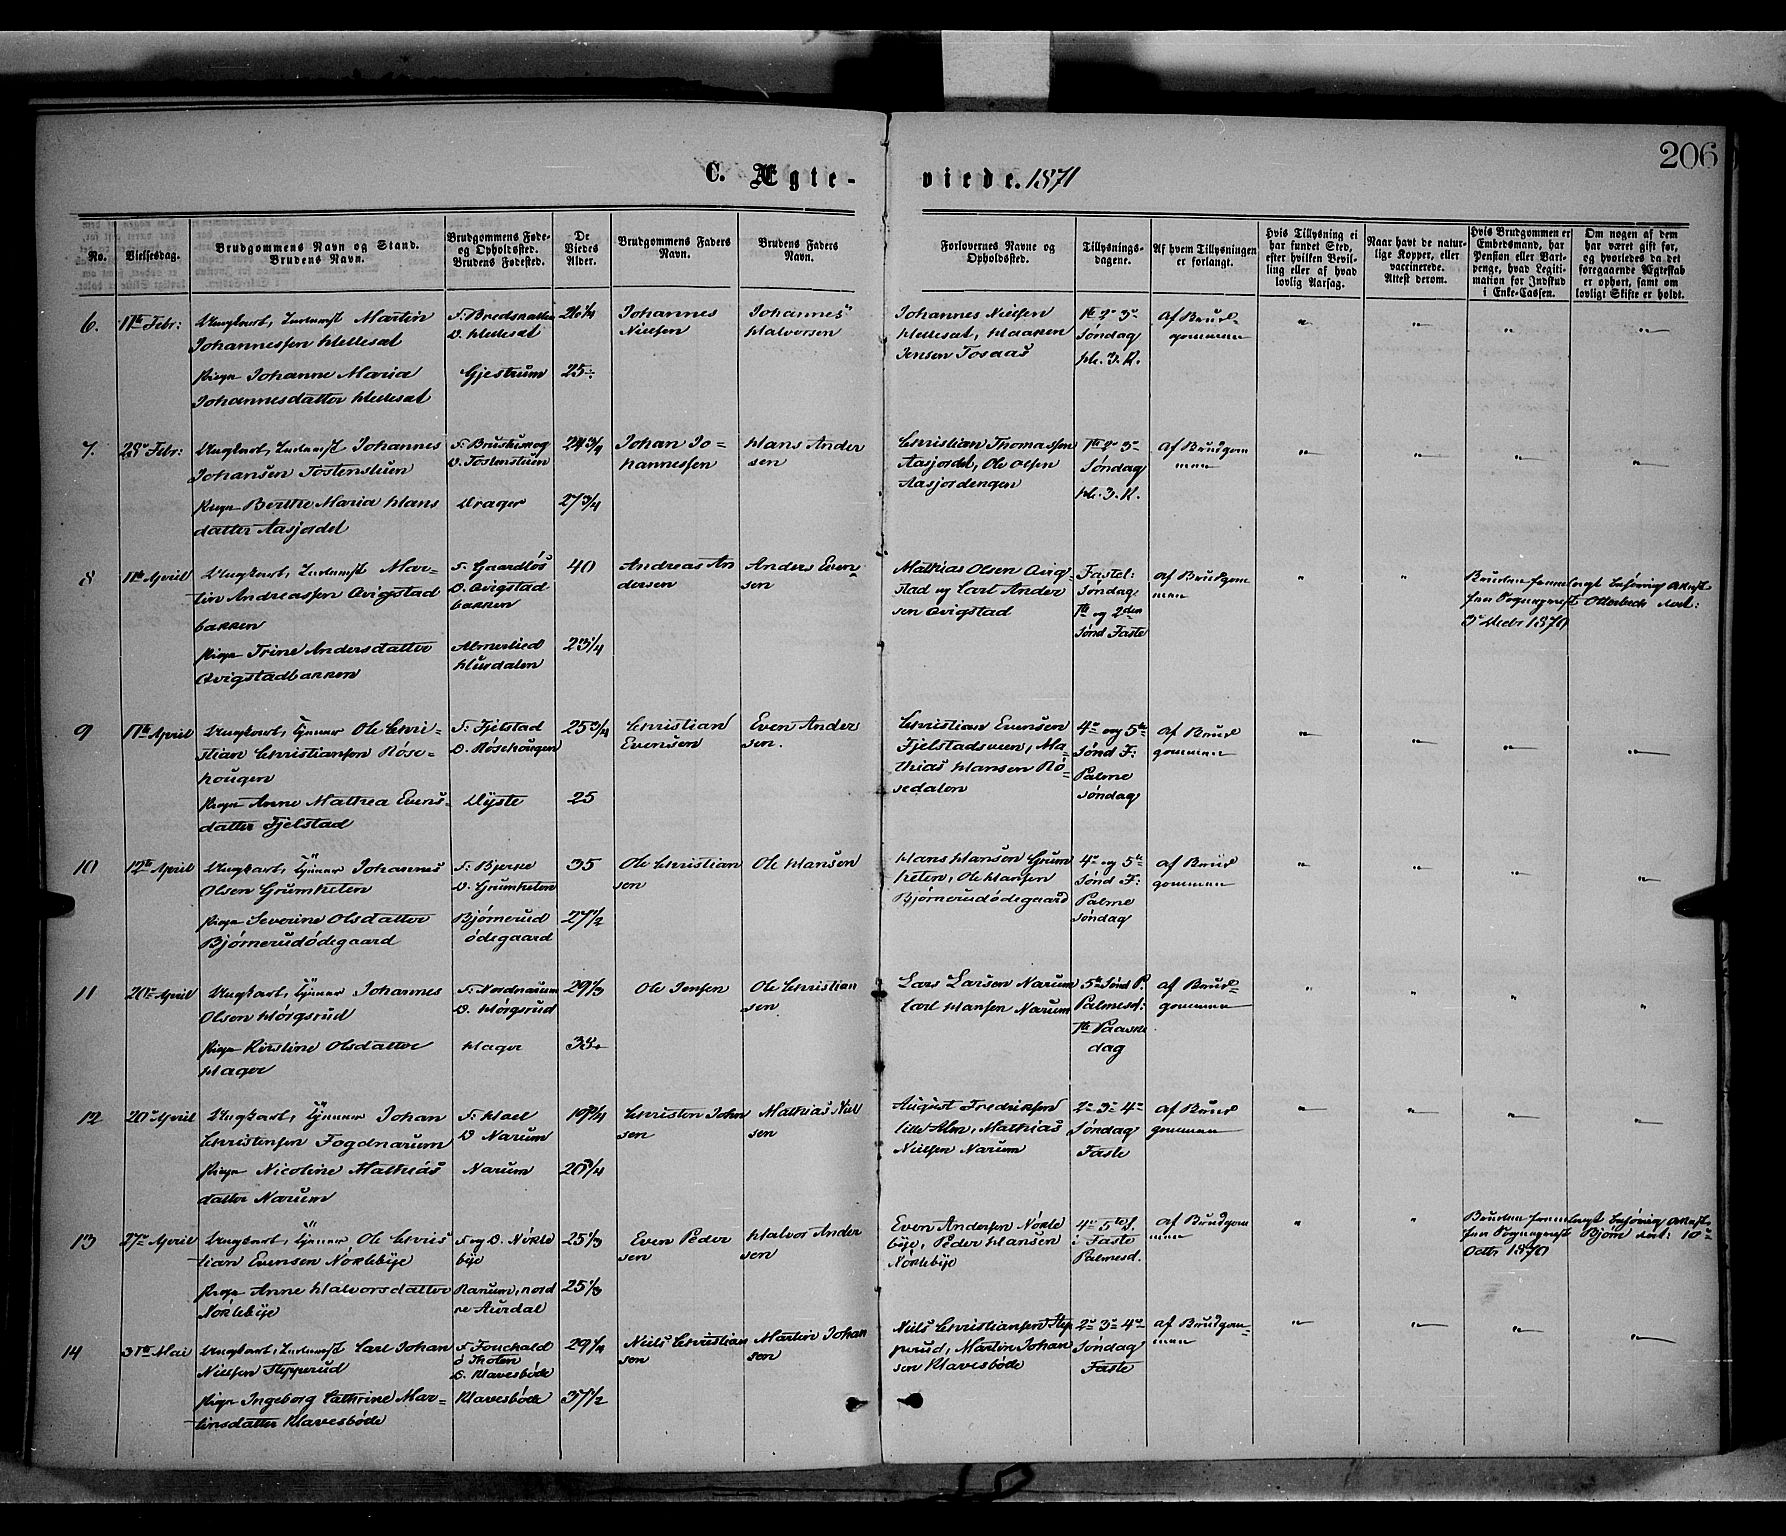 206
C. Ægte-
viede. 1871
No.
Vielsesdag.
Brudgommens Navn og Stand.
Brudens Navn.
Brudgommens Føde-
og Opholdssted.
Brudens Fødested.
De
Viedes
Alder.
Brudgommens Faders
Navn.
Brudens Faders
Navn.
Forlovernes Navne og
Opholdssted.
Tillysnings-
dagene.
Af hvem Tillysningen
er forlangt.
Hvis Tillysning ei
har fundet Sted,
efter hvilken Bevil-
ling eller af hvad
lovlig Aarsag.
Naar havt de natur-
lige Kopper, eller
vaccinerede.
Attest derom.
Hvis Brudgommen er
Embedsmand, har
Pension eller Vart-
penge, hvad Legiti-
mation for Indskud
i Enke-Cassen.
Om nogen af dem
har været gift før,
og hvorledes da det
foregaaende Ægteskab
er ophørt, samt om
lovligt Skifte er holdt.
6.
11te Febr:
Ungkarl, Inderst Martin
Johannessen Hellesat
Pige Johanne Maria
Johannesdatter Hellesat
F. Bredsnatten
O. Hellesat
Gjestrum
26 1/4
25
Johannes
Nielsen
Johannes
Halversen
Johannes Nielsen
Hellesat, Haaken
Jensen Tosaas
1te 2 3
Søndag
H. 3. K.
Af Brud-
gommen
7.
28 Febr:
Ungkarl, Inderst Johannes
Johansen Tostenstuen
Pige Berthe Maria Hans
datter Aasjordet
F. Brusthuus og
O. Tostenstuen
Drager
24 3/4
27 3/4
Johan Jo-
hannessen
Hans Ander
sen
Christian Thomassen
Aasjordet, Ole Olsen
Aasjordengen
1te 2 3
Søndag
H. 3. K.
Af Brudgom
men
8
11te April
Ungkarl, Inderst Mar-
tin Andreassen Qvigstad
bakken
Pige Trine Andersdatter
Qvigstadbakken
F. Gaardløs
O. Qvigstad
bakken
Almerlied
Husdalen
40
23 1/4
Andreas An
dersen
Anders Even-
sen
Mathias Olsen Qvig-
stad og Carl Ander
sen Qvigstad
Fastel:
Søndag
1te og 2den
Sønd Faste
af Brudgom
men
Bruden fremlagt behørig Attest
fra Sogneprest Otterbech dat:
3 Decbr 1870
9
11te April
Ungkarl, Tjener Ole Chri-
stian Christiansen Røse-
hougen
Pige Anne Mathea Evens-
datter Fjelstad
F. Fjelstad
O. Røsehougen
Dyste
25 3/4
25
Christian
Evensen
Even Ander
sen.
Christian Evensen
Fjelstadsveen, Ma-
thias Hansen Rø-
sedalen
4 og 5te
Sønd F:
Palme
søndag
af Brud
gommen
10
12te April
Ungkarl, Tjener Johannes
Olsen Grumheten
Pige Severine Olsdatter
Bjørnerudødegaard
F. Bjerke
O. Grumheten
Bjørnerud
ødegaard
35
27 1/2
Ole Christian
sen
Ole Hansen
Hans Hansen Grum
heten, Ole Hansen
Bjørnerudødegaard
4 og 5te
Sønd F:
Palme
søndag
af Brud
gommen
11
20 April
Ungkarl, Tjener Johannes
Olsen Hørgsrud
Pige Kirstine Olsdatter
Hager
F. Nordnarum
O. Hørgsrud
Hager
29 1/3
Ole Jensen
Ole Christian
sen
Lars Larsen Narum
Carl Hansen Narum
5te Sønd F.
Palmesd:
1te Paaske
dag
af Brud-
gommen
12
20 April
Ungkarl, Tjener Johan
Christensen Fogdnarum
Pige Nicoline Mathias
datter Narum
F. Hael
O Narum
Narum
19 3/4
20 3/4
Christen John
sen
Mathias Niel
sen
August Fredriksen
lille Alm, Mathias
Nielsen Narum
2 3 4
Søndag
Faste
af Brud
gommen
13
27 April
Ungkarl, Tjener Ole Chris
tian Evensen Nøklebye
Pige Anne Halvorsdatter
Nøklebye
F og O. Nøkle
bye
Ranum, nord
re Aurdal
25 1/3
25 1/3
Even Peder
sen
Halvor Ander
sen
Even Andersen Nøkle
bye, Peder Hansen
Nøklebye
4 5te S.
i Faste
Palmesd.
af Brudgom
men
Bruden fremlagt behørig Attest
fra Sogneprest Bjørn dat: 10
Octbr 1870
14
31te Mai
Ungkarl, Inderst Carl Johan
Nielsen Stepperud
Pige Ingeborg Cathrine Mar-
tinsdatter Klavesbøde
F Fouchald
ø Thoten
O. Klavesbøde
Klavesbøde
29 1/4
37 1/2
Niels Christian
sen
Martin Johan
sen
Niels Christiansen Step
perud, Martin Johan
sen Klavesbøde
2 3 4
Søndag
Faste
af Brudgom-
men